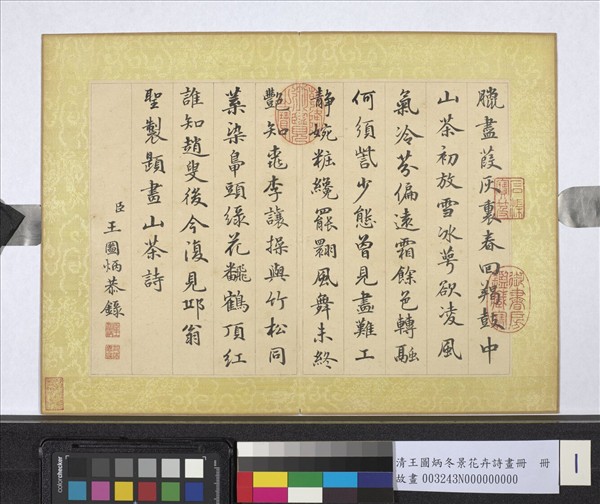 臘盡葭灰裏春回羯鼓中
山茶初放雪冰萼欲凌風
氣冷芬偏遠霜餘色轉融
何須訾少態曾見畫難工
靜婉粧纔罷翾風舞未終
艷知桃李讓操與竹松同
葉染鳧頭綠花飜鶴頂紅
誰知趙叟後今復見邛翁
聖製題畫山茶詩
臣王圖炳恭錄
colorchecker
清王圖炳冬景花卉詩畫冊 冊
故畫 003243N000000000